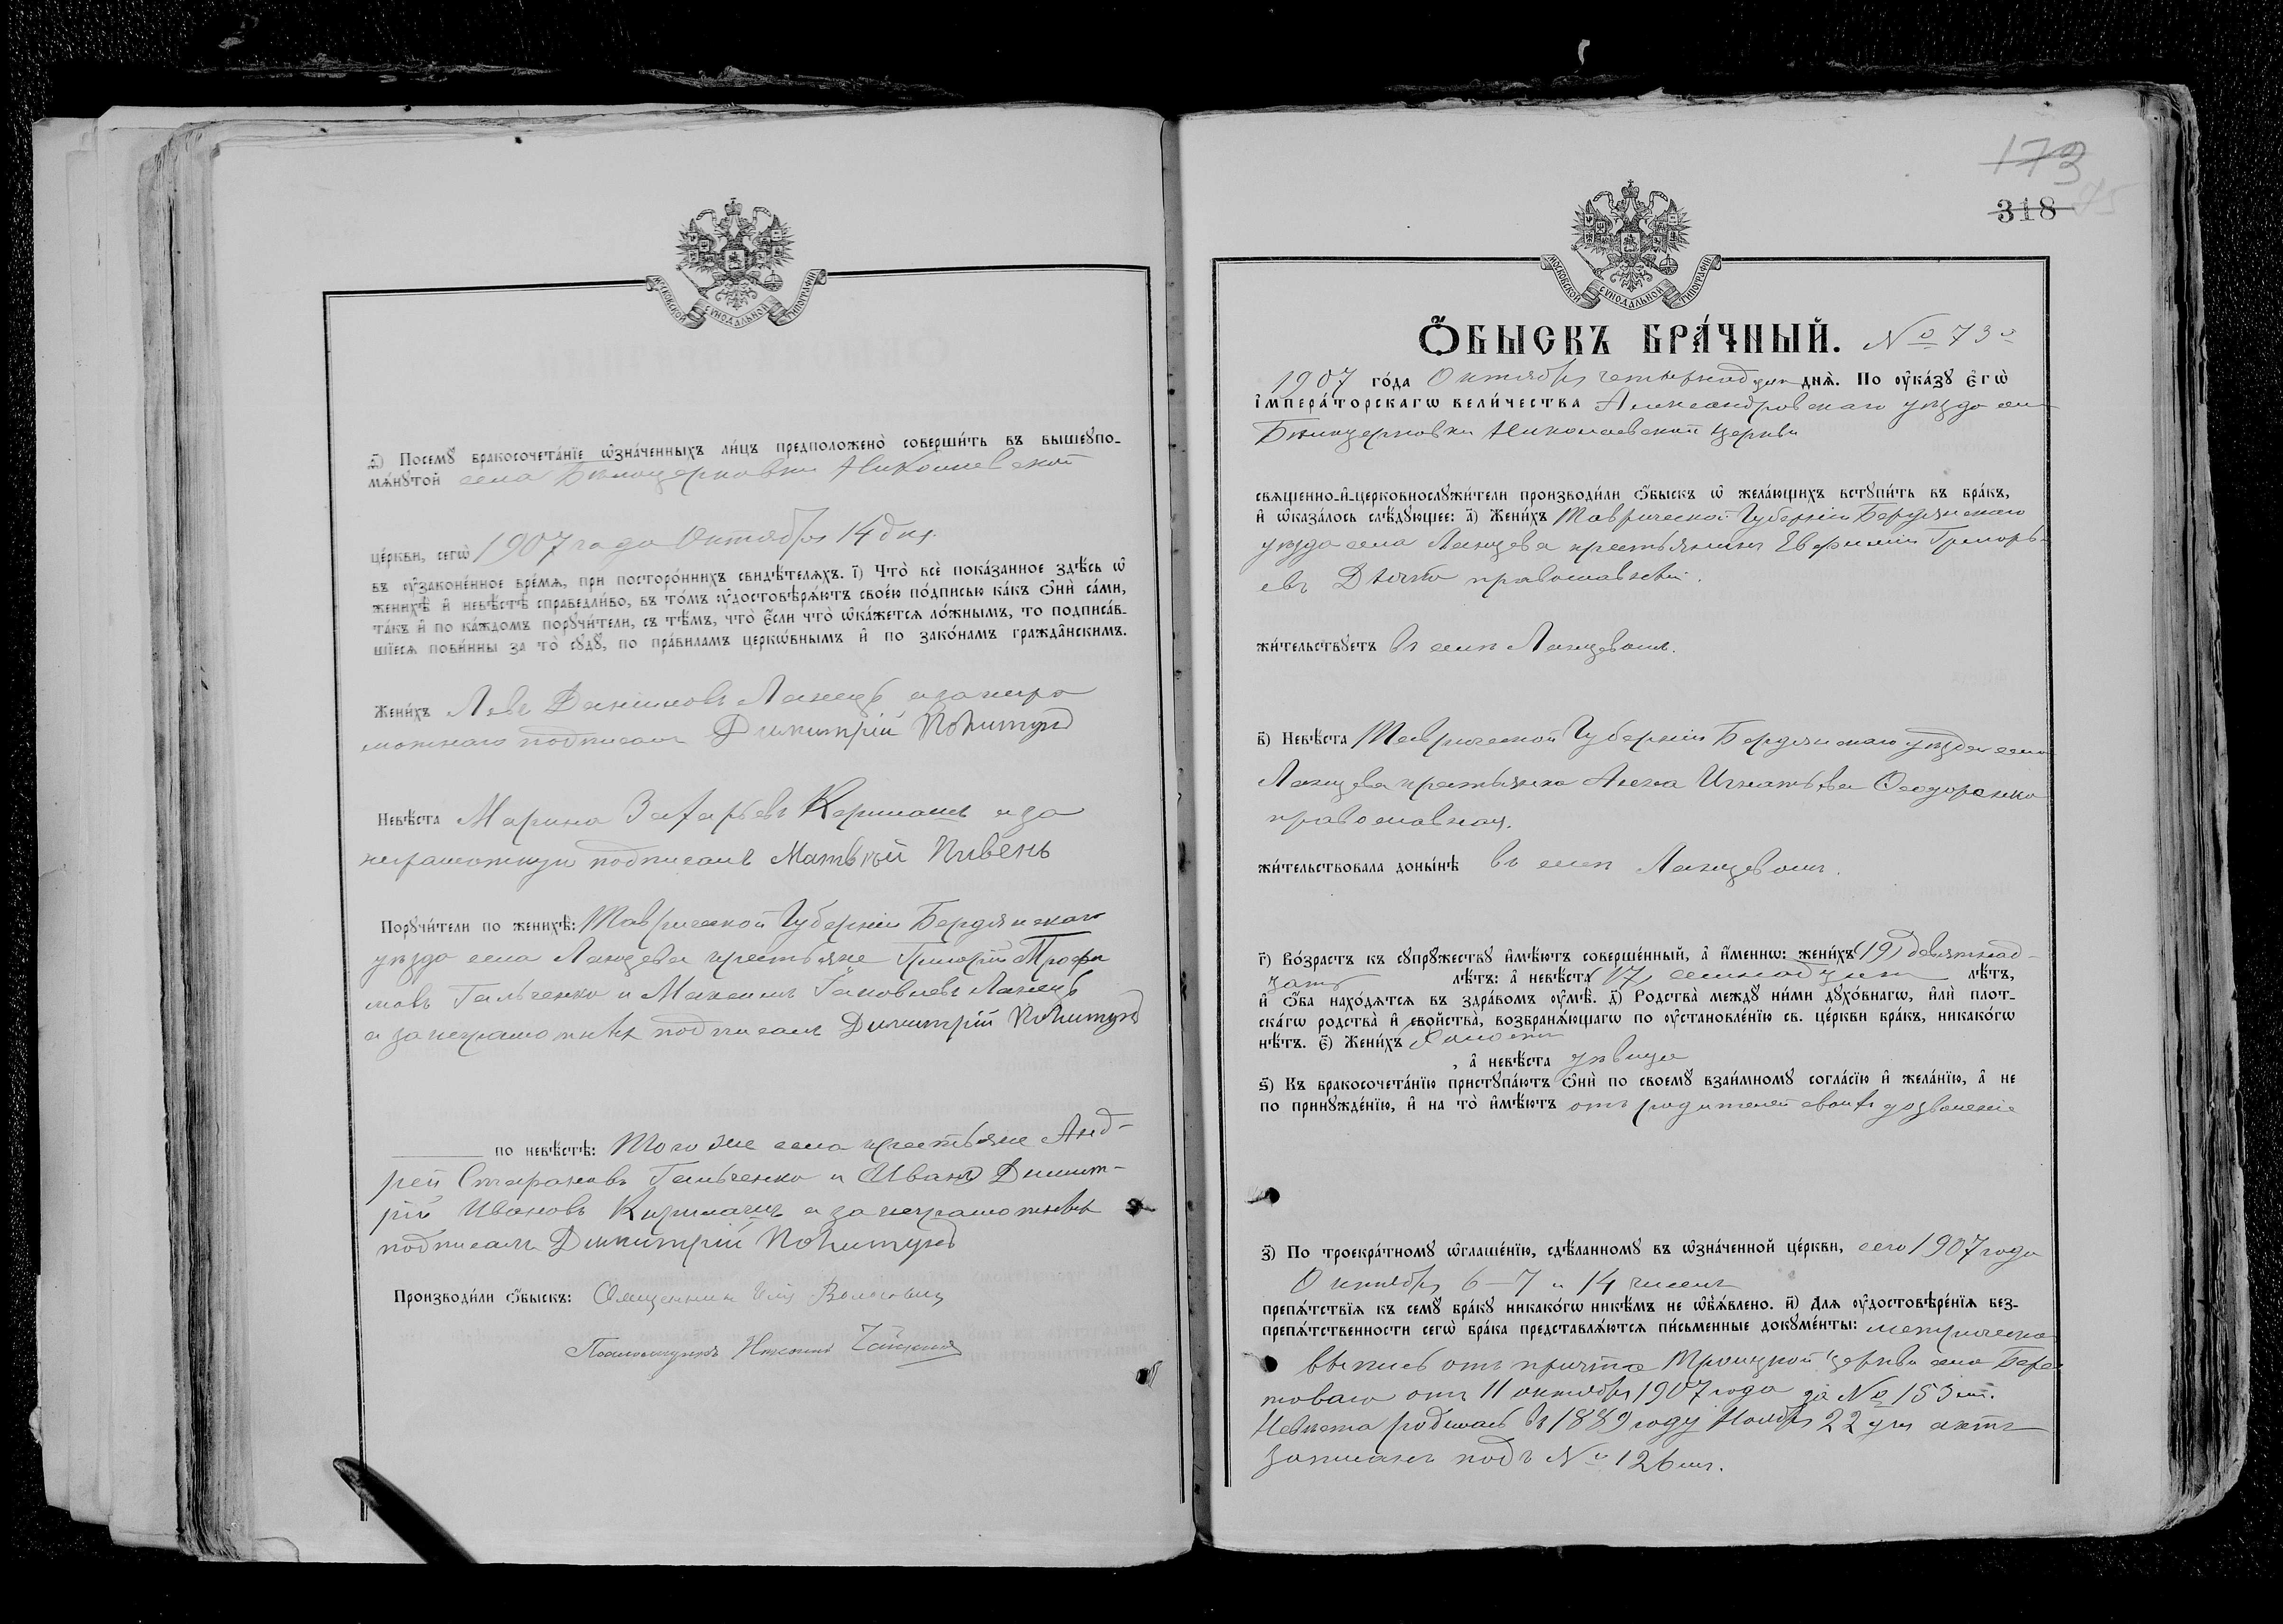 МОСКОВСКОЙ СѴНОДАЛЬНОЙ ТИПОГРАФІИ
д҃і) Посемꙋ̀ бракосочета́нїе ѡ҆зна́ченныхъ ли́цъ предположено̀ соверши́ть въ вышеꙋпо-
мѧ́нꙋтой села Бѣлоцерковки Николаевской
це́ркви, сегѡ̀ 1907 года Октября 14 дня.
въ ᲂу҆законе́нное вре́мѧ, при посторо́ннихъ свидѣ́телѧхъ. і҃) Что̀ всѐ пока́занное здѣ́сь ѡ҆
женихѣ̀ и҆ невѣ́стѣ справедли́во, въ то́мъ ᲂу҆достовѣрѧ́ютъ свое́ю по́дписью ка́къ ѻ҆нѝ са́ми,
та́къ и҆ по ка́ждомъ порꙋчи́тели, съ тѣ́мъ, что̀ є҆́сли что̀ ѡ҆ка́жетсѧ ло́жнымъ, то подписа́в-
шїесѧ пови́нны за то̀ сꙋдꙋ̀, по пра́виламъ церко́внымъ и҆ по зако́намъ гражда́нскимъ.
Жени́хъ Левъ Даниловъ Ланецъ а за негра
мотнаго подписалъ Димитрій
Невѣ́ста Марина Захарьевъ а за
неграмотную подписалъ Матвѣй Пивень
Порꙋчи́тели по женихѣ̀: Таврической Губерніи Бердянскаго
уѣзда села Ланцева крестьяне Григорій Трофи
мовъ Гальченко и Максимъ Яковлевъ Ланецъ
а за неграмотныхъ подписалъ Димитрій
по невѣ́стѣ: Того же села крестьяне Анд-
рей Гальченко и Иванъ Димит-
рій Ивановъ а за неграмотныхъ
подписалъ Димитрій
Производи́ли ѻ҆́быскъ: Священникъ
Псаломщикъ
173
318
МОСКОВСКОЙ СѴНОДАЛЬНОЙ ТИПОГРАФІИ
Ѻ҆́БЫСКЪ БРА́ЧНЫЙ. № 73
1907 го́да Октября четырнадцат днѧ̀. По ᲂу҆ка́зꙋ Є҆гѡ̀
І҆мпера́торскагѡ Вели́чества Александровскаго уѣзда села
Бѣлоцерковки Николаевской церкви
свѧще́нно-и҆-церковнослꙋжи́тели производи́ли ѻ҆́быскъ ѡ҆ жела́ющихъ встꙋпи́ть въ бра́къ,
и҆ ѡ҆каза́лось слѣ́дꙋющее: а҃) Жени́хъ Таврической Губерніи Бердянскаго
уѣзда села Ланцева крестьянинъ Евфимій Григорь-
евъ православный.
жи́тельствꙋетъ въ селѣ Ланцевомъ.
в҃) Невѣ́ста Таврической Губерніи Бердянскаго уѣзда села
Ланцева крестьянка Анна Игнатьева Ѳеодоренко
православная.
жи́тельствовала доны́нѣ въ селѣ Ланцевомъ.
г҃) Во́зрастъ къ сꙋпрꙋ́жествꙋ и҆мѣ́ютъ соверше́нный, а҆ и҆́менно: жени́хъ (19) девятнад-
цать лѣ́тъ: а҆ невѣ́ста (17) семнадцать лѣ́тъ,
и҆ ѻ҆́ба нахо́дѧтсѧ въ здра́вомъ ᲂу҆мѣ̀. д҃) Родства̀ междꙋ ни́ми дꙋхо́внагѡ, и҆лѝ плот-
ска́гѡ родства̀ и҆ сво́йства̀, возбранѧ́ющагѡ по ᲂу҆становле́нїю св. це́ркви бра́къ, никако́гѡ
нѣ́тъ. є҃) Жени́хъ Холостъ
, а҆ невѣ́ста дѣвица
ѕ҃) Къ бракосочета́нїю пристꙋпа́ютъ ѻ҆нѝ по своемꙋ̀ взаи́мномꙋ согла́сїю и҆ жела́нїю, а҆ не
по принꙋжде́нїю, и҆ на то̀ и҆мѣ́ютъ отъ родителей своихъ дозволеніе
з҃) По троекра́тномꙋ ѡ҆глаше́нїю, сдѣ́ланномꙋ въ ѡ҆зна́ченной це́ркви, сего 1907 года
Октября 6-7 и 14 чиселъ
препѧ́тствїѧ къ семꙋ̀ бра́кꙋ никако́гѡ никѣ́мъ не ѡ҆б̾ѧ́влено. и҃) Длѧ ᲂу҆достовѣре́нїѧ без-
препѧ́тственности сегѡ̀ бра́ка представлѧ́ютсѧ пи́сьменные докꙋме́нты: метрическа
выпись отъ причта Троицкой церкви села Бере-
товаго отъ 11 октября 1907 года за № 153 мъ.
Невѣста родилась въ 1889 году Ноября 22 дня актъ
записанъ подъ № 126 мъ.